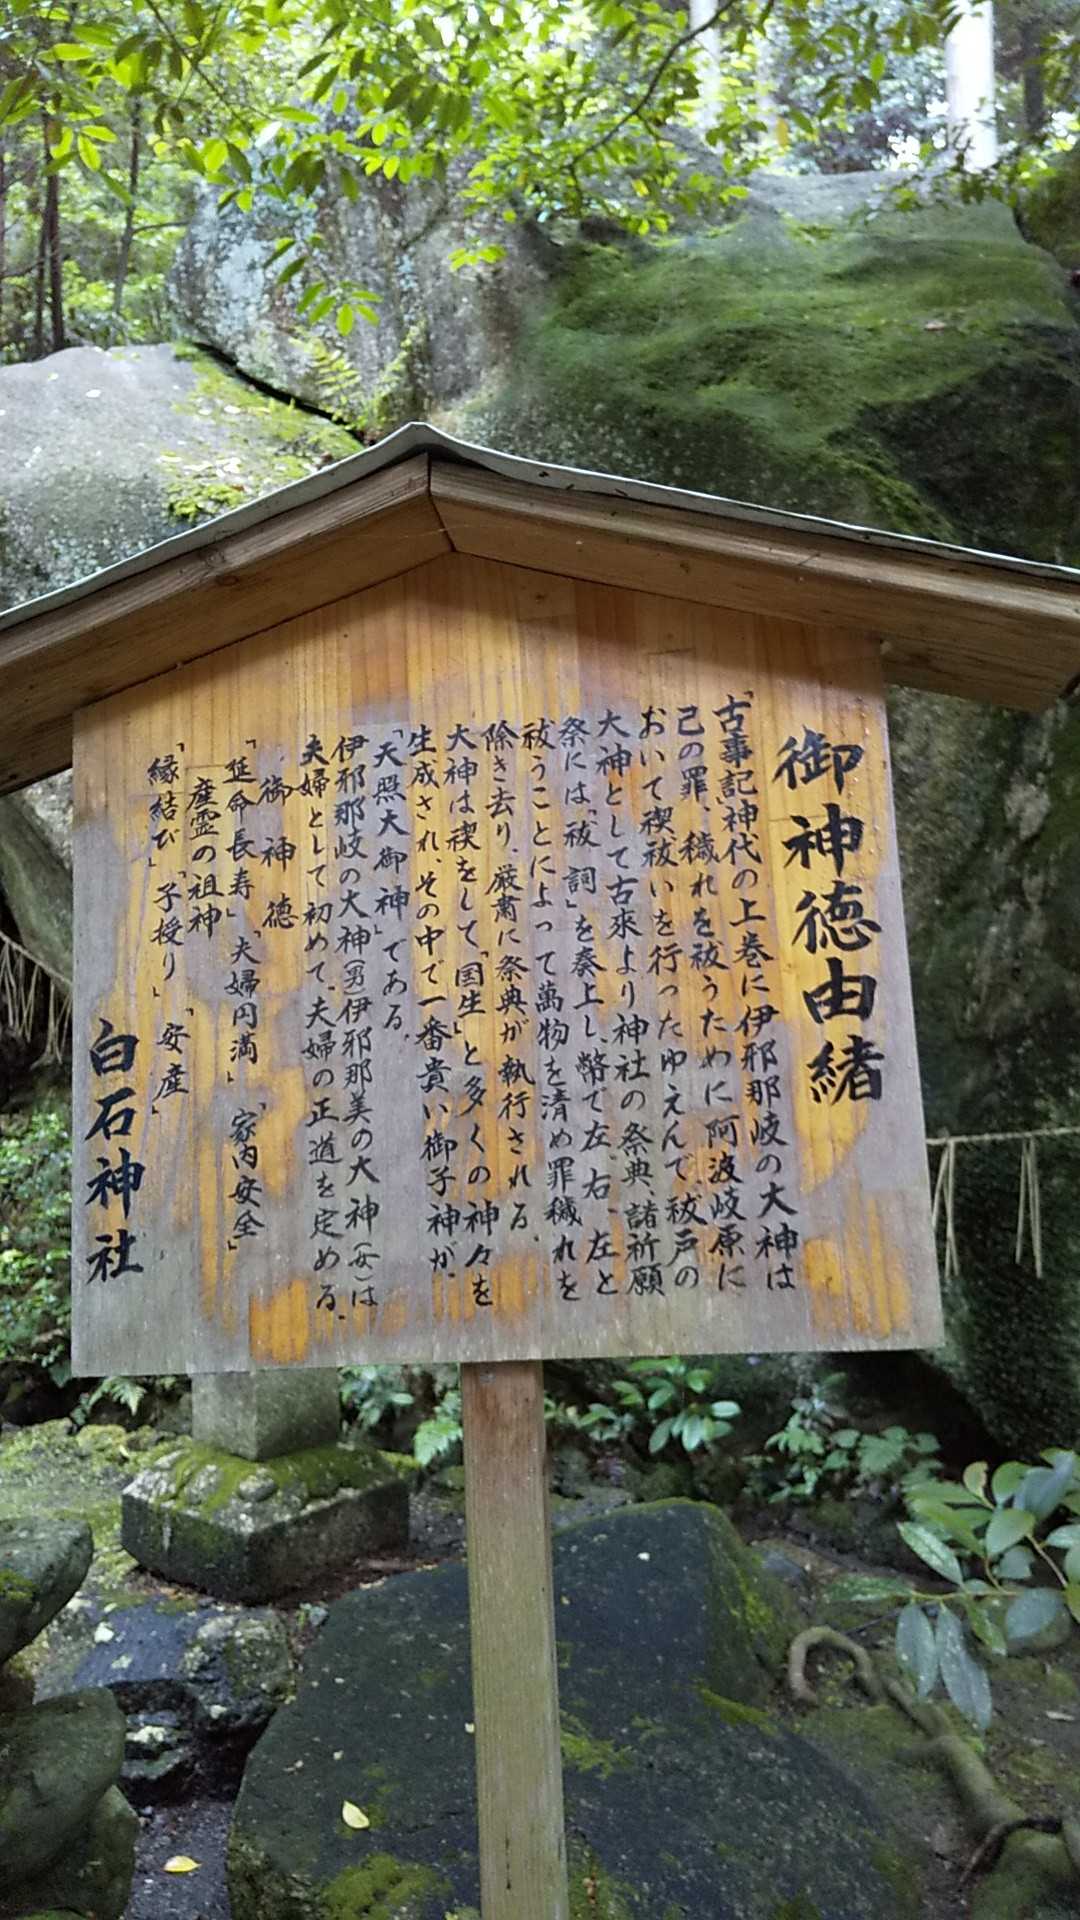 御神徳由緒
「古事記」神代の上巻に伊邪那岐の大神は
己の罪、穢れを祓うために阿波岐原に
おいて禊祓いを行ったゆえんで、祓戸の
大神として古来より神社の祭典、諸祈願
祭には「祓詞」を奏上し、幣で左、右、左と
祓うことによって萬物を清め罪穢れを
除き去り、厳粛に祭典が執行される、
大神は禊をして「国生」と多くの神々を
生成され、その中で一番貴い御子神が、
「天照大御神」である、
伊邪那岐の大神(男)伊邪那美の大神(女)は
夫婦として初めて、夫婦の正道を定める、
御神徳
「延命長寿」「夫婦円満」「家内安全」
産霊の祖神
「縁結び」「子授り」「安産」
白石神社